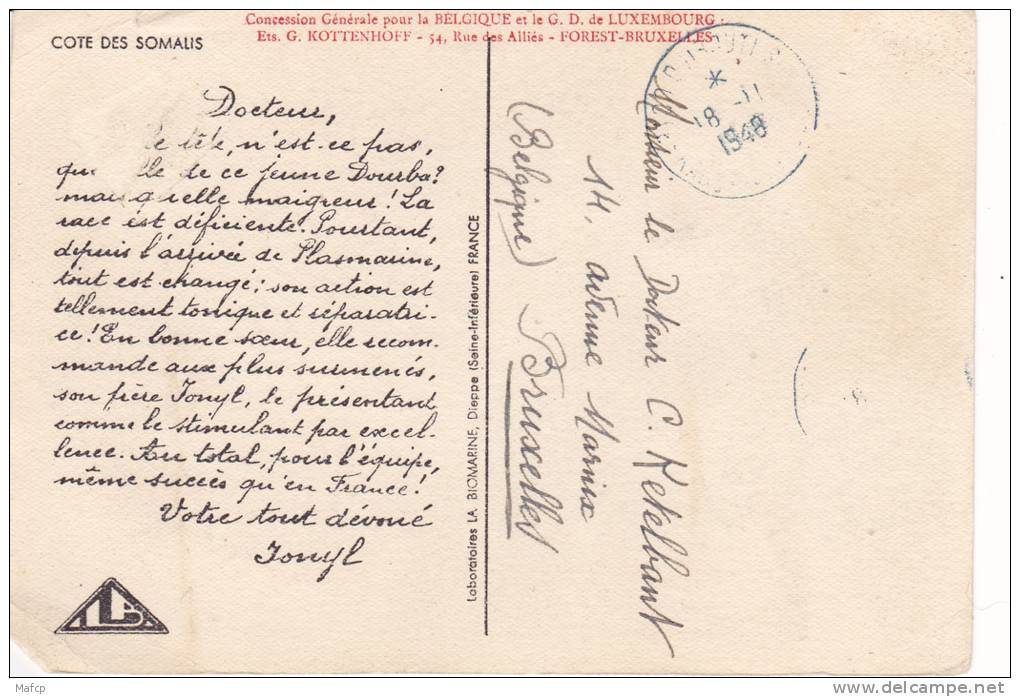 Concession Générale pour la BELGIQUE et le G. D. de LUXEMBOURG :
Ets. G. KOTTENHOFF - 54, Rue des Alliés - FOREST-BRUXELLES
COTE DES SOMALIS
Docteur,
tête, n'est-ce pas,
de ce jeune Dourba?
mais quelle maigreur! La
race est déficiente. Pourtant,
depuis l'arrivée de Plasmarine,
tout est changé: son action est
tellement tonique et réparatri-
ce! En bonne sœur, elle recom-
mande aux plus surmenés,
son frère Ionyl, le présentant
comme le stimulant par excel-
lence. Au total, pour l'équipe,
même succès qu'en France!
Votre tout dévoué
Ionyl
Laboratoires LA BIOMARINE, Dieppe (Seine-Inférieure) FRANCE
Monsieur le Docteur C. Ketelbant
14, avenue Marnix
Bruxelles
(Belgique)
18 -11
1948
LB
Mafcp
www.delcampe.net